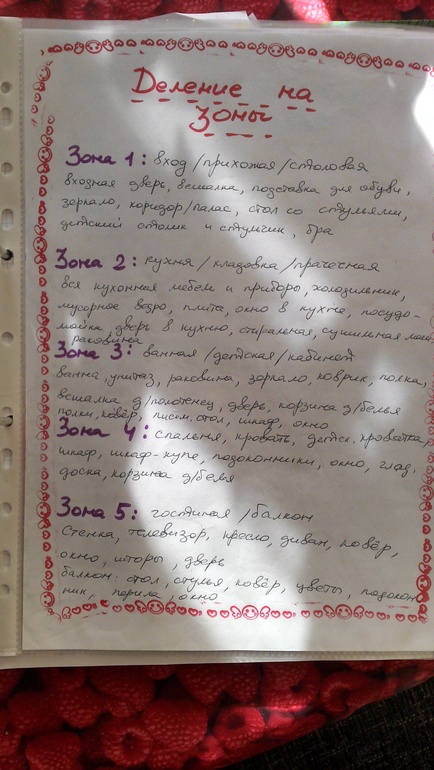 Деление на
Зоны
Зона 1: вход/прихожая/столовая
входная дверь, вешалка, подставка для обуви,
зеркало, коридор/палас, стол со стульями,
детский столик и стульчик, бра
Зона 2: кухня/кладовка/прачечная
вся кухонная мебель и приборы, холодильник,
мусорное ведро, плита, окно в кухне, посудо-
мойка, дверь в кухню, стиральная, сушильная маш.
раковина
Зона 3: ванная/детская/кабинет
ванна, унитаз, раковина, зеркало, коврик, полка,
вешалка д/полотенец, дверь, корзина д/белья
полки, ковёр, письм. стол, шкаф, окно
Зона 4: спальня, кровать, детск. кроватка,
шкаф, шкаф-купе, подоконники, окно, глад.
доска, корзина д/белья
Зона 5: гостиная/балкон
Стенка, телевизор, кресло, диван, ковёр,
окно, шторы, дверь
балкон: стол, стулья, ковёр, цветы, подокон
ник, перила, окно